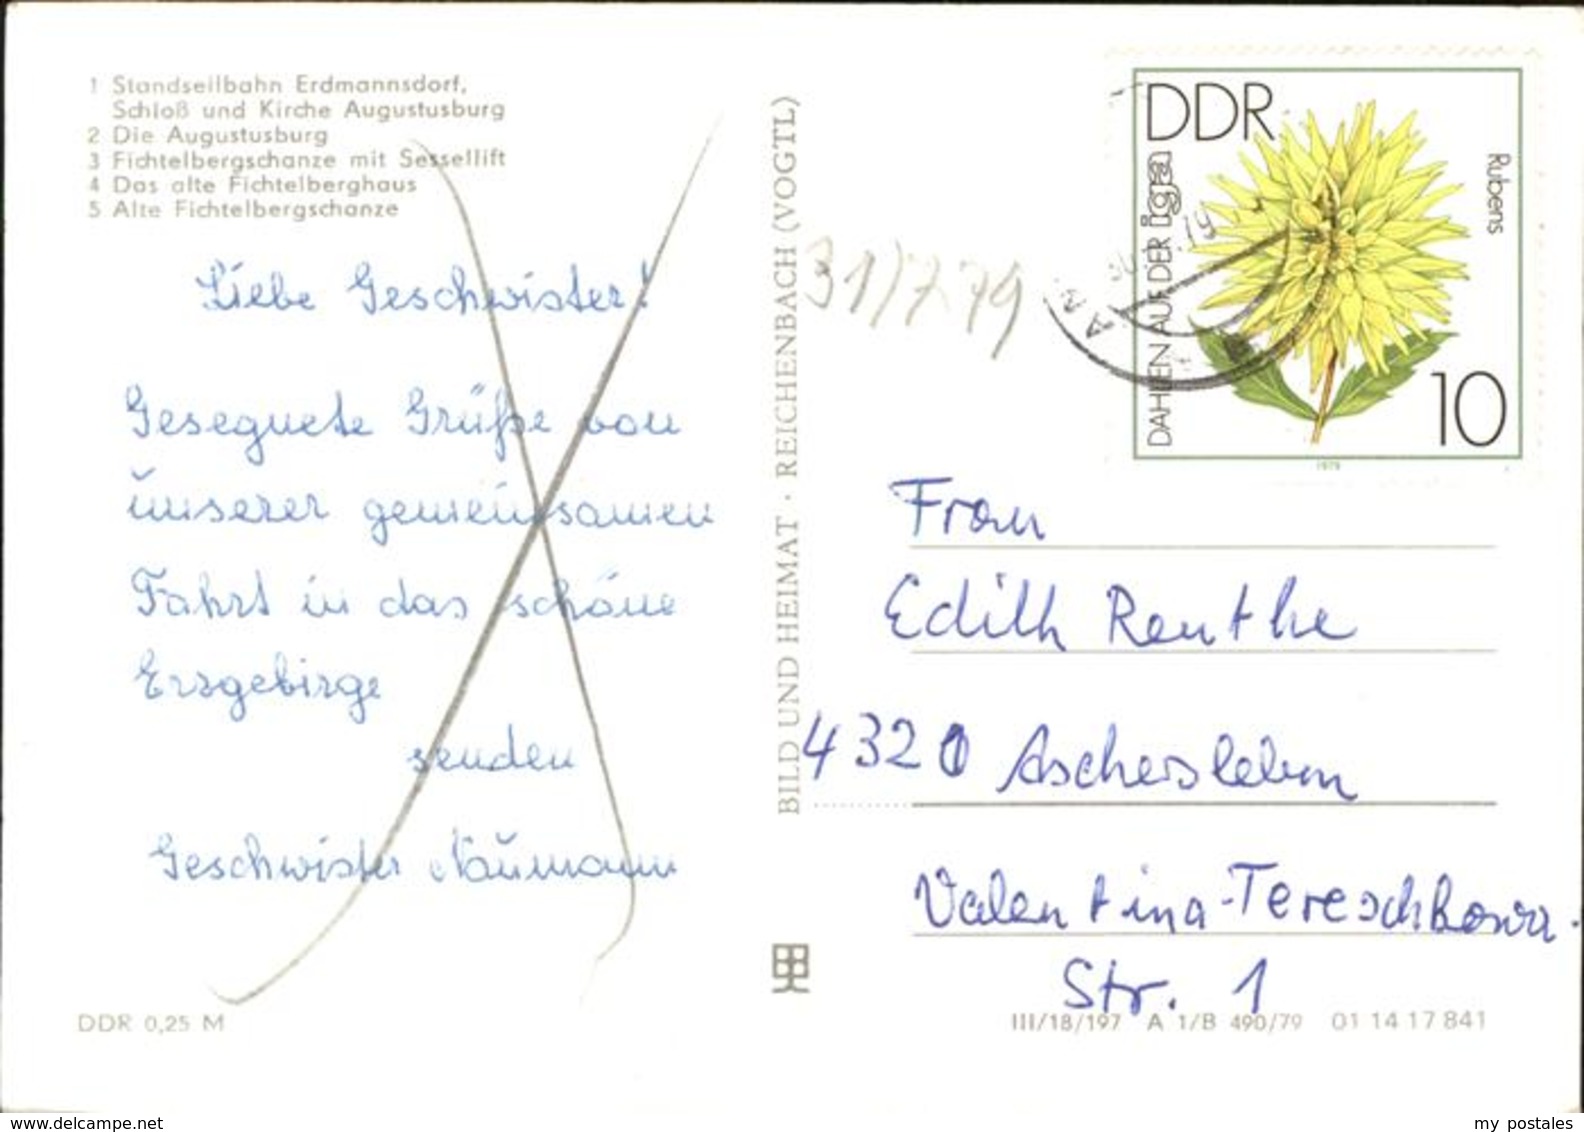 1 Standseilbahn Erdmannsdorf,
Schloß und Kirche Augustusburg
2 Die Augustusburg
3 Fichtelbergschanze mit Sessellift
4 Das alte Fichtelberghaus
5 Alte Fichtelbergschanze
Liebe Geschwister!
Gesegnete Grüße von
unserer gemeinsamen
Fahrt in das schöne
Erzgebirge
senden
Geschwister Naumann
DDR 0,25 M
BILD UND HEIMAT · REICHENBACH (VOGTL)
31/7.79
DDR
DAHLIEN AUF DER iga
Rubens
10
1979
Frau
Edith Reuthe
4320 Aschersleben
Valentina-Tereschkowa-
Str. 1
III/18/197 A 1/B 490/79 01 14 17 841
www.delcampe.net
my postales